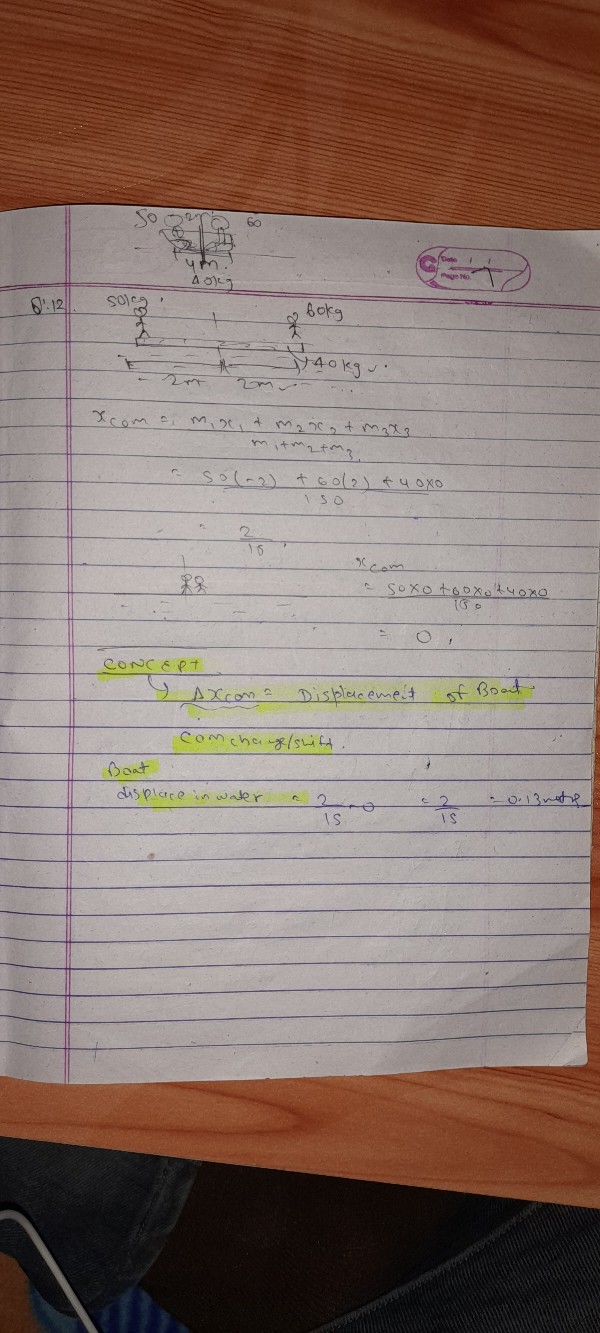 50 2 60
4m.
40kg
Date / /
Page No. 7
Q.12
50kg. 60kg
40kg
2m 2m
xcom = m₁x₁ + m₂x₂ + m₃x₃
m₁+m₂+m₃
= 50(-2) + 60(2) + 40x0
150
= 2
15
xcom
= 50x0 + 60x0 + 40x0
150
= 0
CONCEPT
↳ Δxcom = Displacement of Boat
com change/shift.
Boat
displace in water = 2/15 - 0 = 2/15 = 0.13 metre